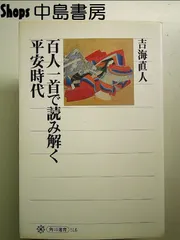 Shops 中島書房
百人一首で読み解く
平安時代
吉海直人
角川選書